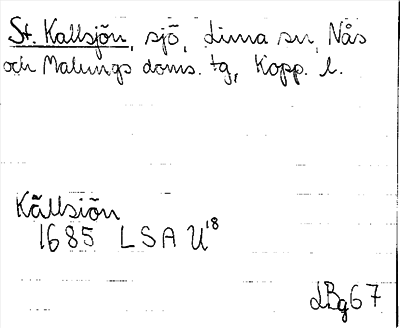 St. Kallsjön, sjö, Lima sn, Nås
och Malungs doms. tg, Kopp. l.
Källsiön
1685 LSA U¹⁸
LBg67